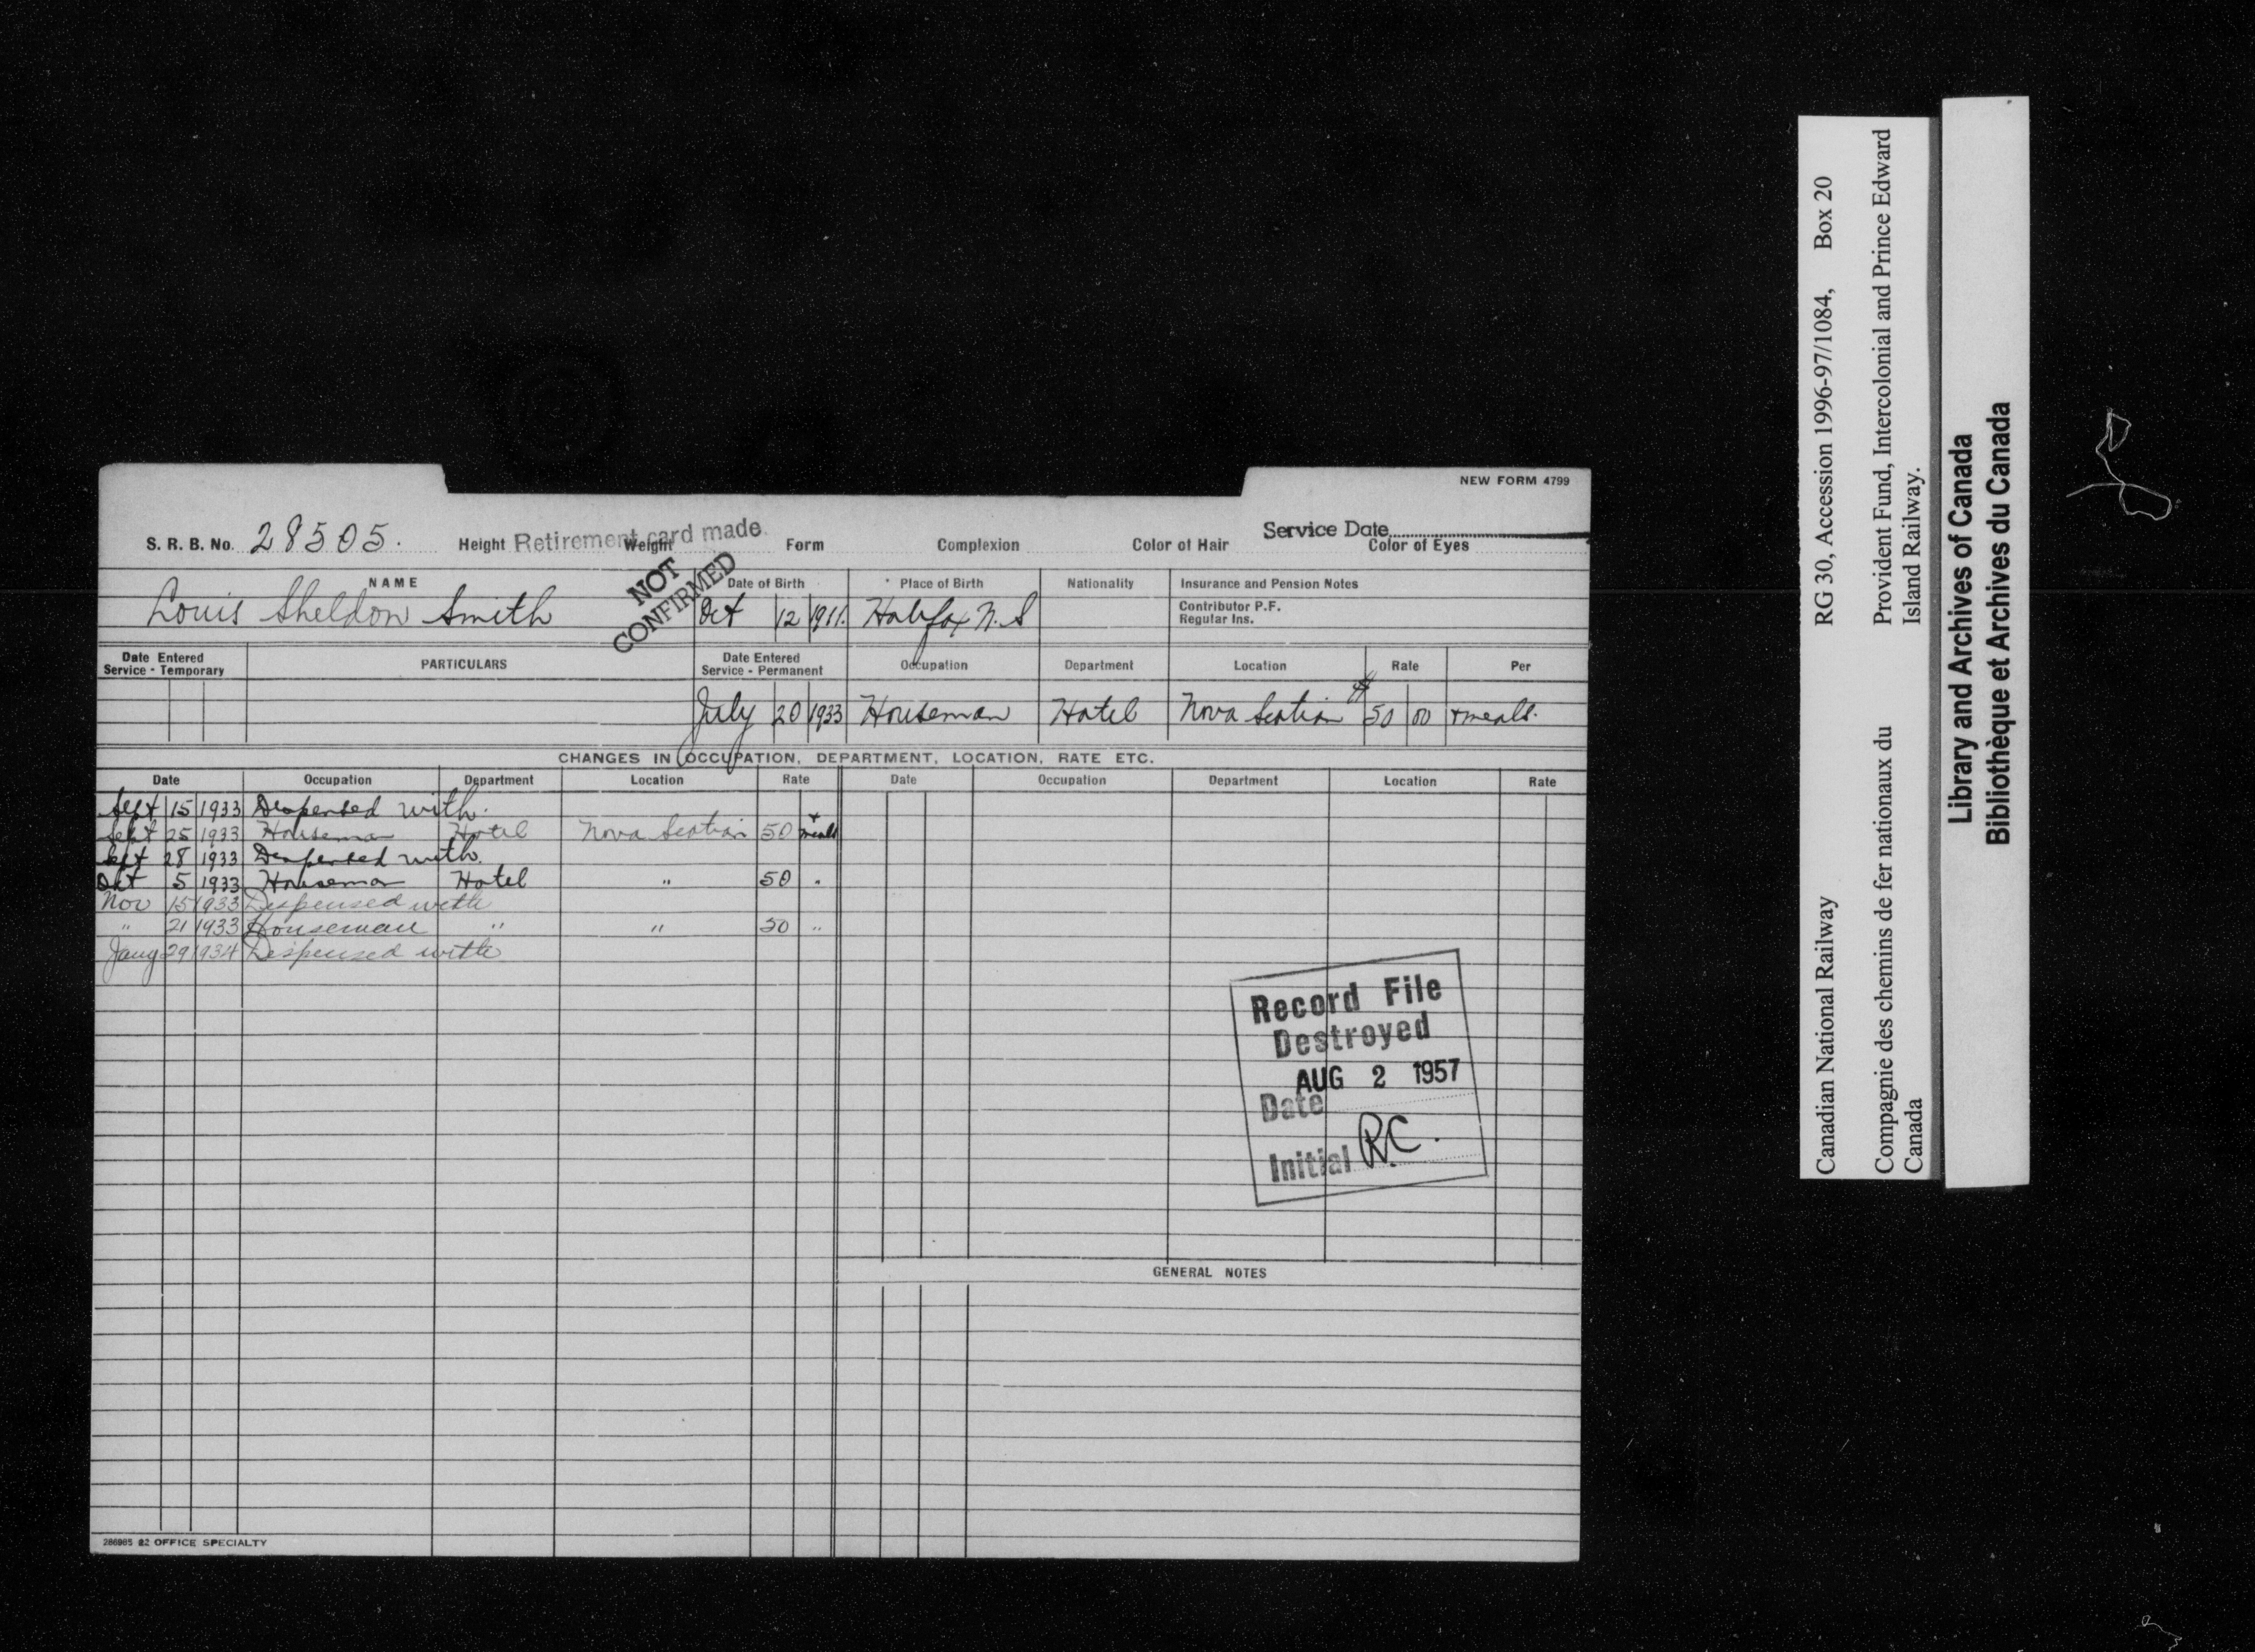 NEW FORM 4799
S. R. B. No. 28505. Height Retirement card made Weight Form Complexion Color of Hair Service Date Color of Eyes
NOT CONFIRMED
NAME Date of Birth Place of Birth Nationality Insurance and Pension Notes
Louis Sheldon Smith Oct 12 1911. Halifax N.S Contributor P.F.
Regular Ins.
Date Entered Service - Temporary PARTICULARS Date Entered Service - Permanent Occupation Department Location Rate Per
July 20 1933 Houseman Hotel Nova Scotian $ 50 00 + meals.
CHANGES IN OCCUPATION, DEPARTMENT, LOCATION, RATE ETC.
Date Occupation Department Location Rate Date Occupation Department Location Rate
Sept 15 1933 Dispensed with.
Sept 25 1933 Houseman Hotel Nova Scotian 50 + meals
Sept 28 1933 Dispensed with.
Oct 5 1933 Houseman Hotel " 50 "
Nov 15 1933 Dispensed with
" 21 1933 Houseman " " 50 "
Jany 29 1934 Dispensed with
Record File
Destroyed
AUG 2 1957
Date
Initial R.C.
GENERAL NOTES
OFFICE SPECIALTY
Canadian National Railway RG 30, Accession 1996-97/1084, Box 20
Compagnie des chemins de fer nationaux du Canada
Provident Fund, Intercolonial and Prince Edward Island Railway.
Library and Archives of Canada
Bibliothèque et Archives du Canada